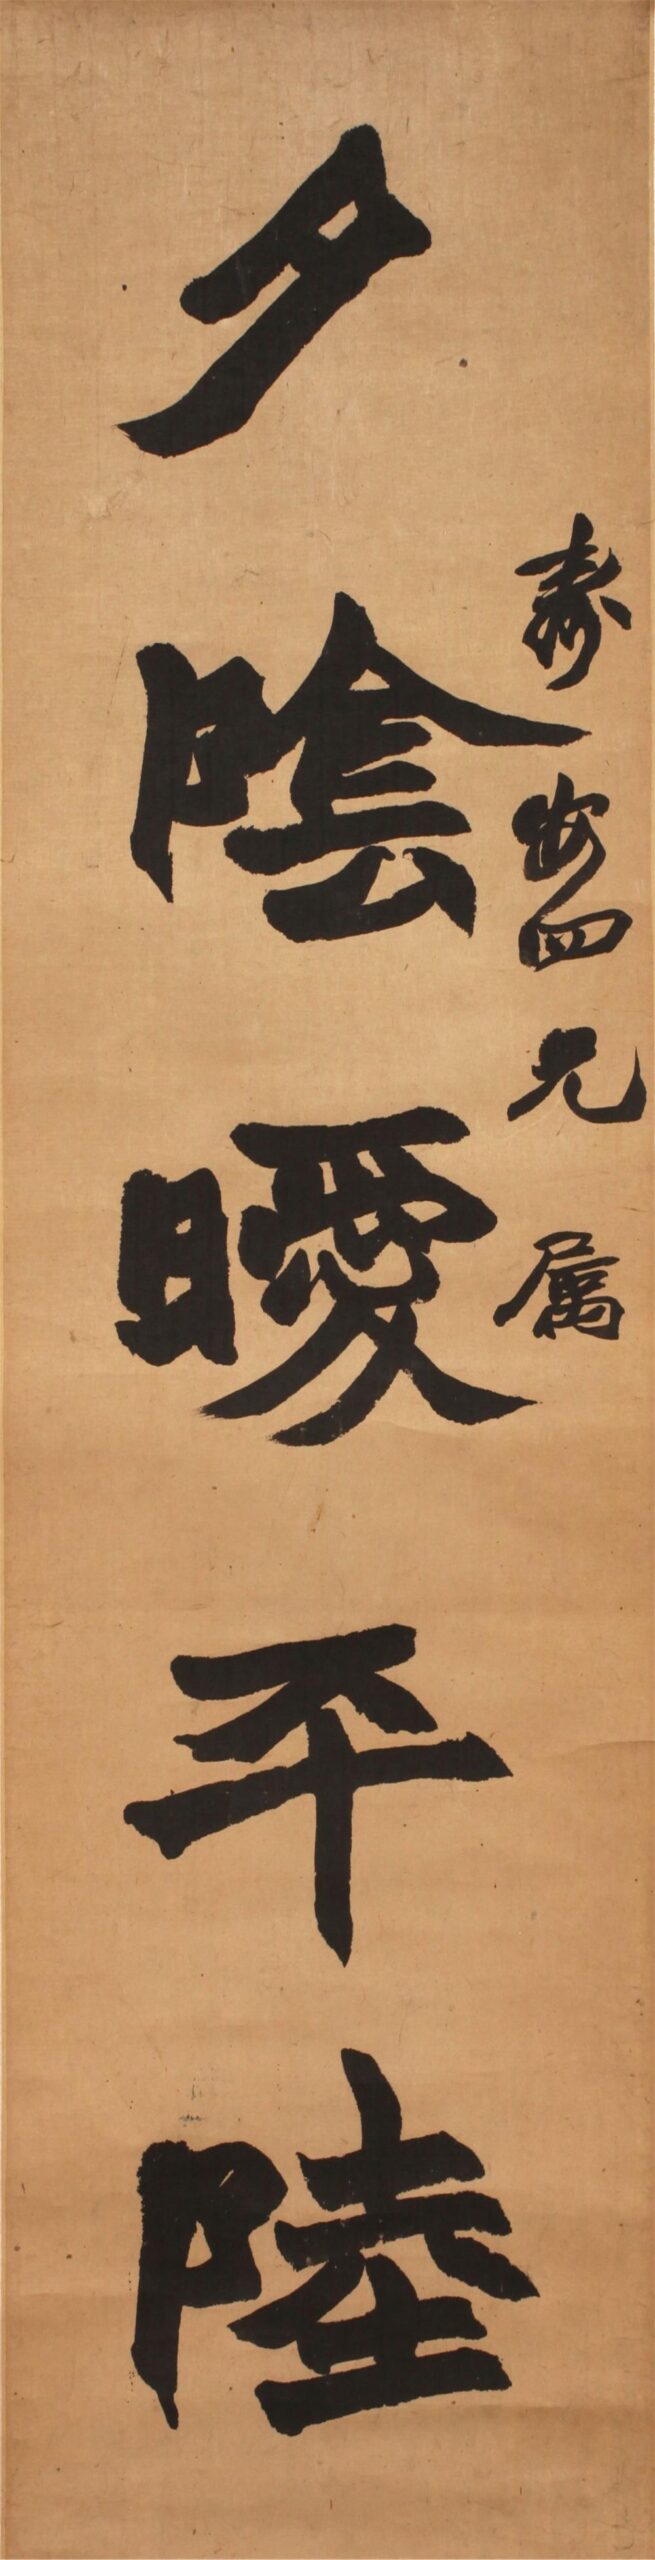 壽安四兄 屬
夕陰曖平陸